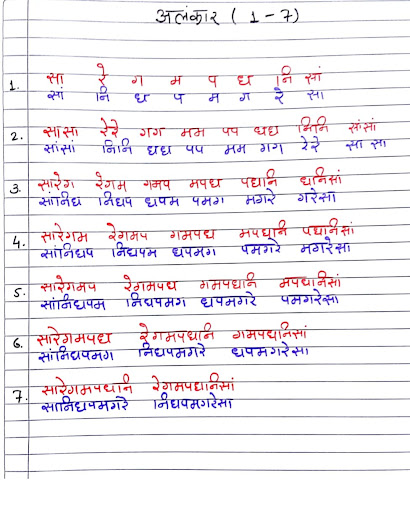 अलंकार ( 1 - 7 )
1. सा रे ग म प ध नि सां
सां नि ध प म ग रे सा
2. सासा रेरे गग मम पप धध निनि सांसां
सांसां निनि धध पप मम गग रेरे सा सा
3. सारेग रेगम गमप मपध पधनि धनिसां
सांनिध निधप धपम पमग मगरे गरेसा
4. सारेगम रेगमप गमपध मपधनि पधनिसां
सांनिधप निधपम धपमग पमगरे मगरेसा
5. सारेगमप रेगमपध गमपधनि मपधनिसां
सांनिधपम निधपमग धपमगरे पमगरेसा
6. सारेगमपध रेगमपधनि गमपधनिसां
सांनिधपमग निधपमगरे धपमगरेसा
7. सारेगमपधनि रेगमपधनिसां
सांनिधपमगरे निधपमगरेसा